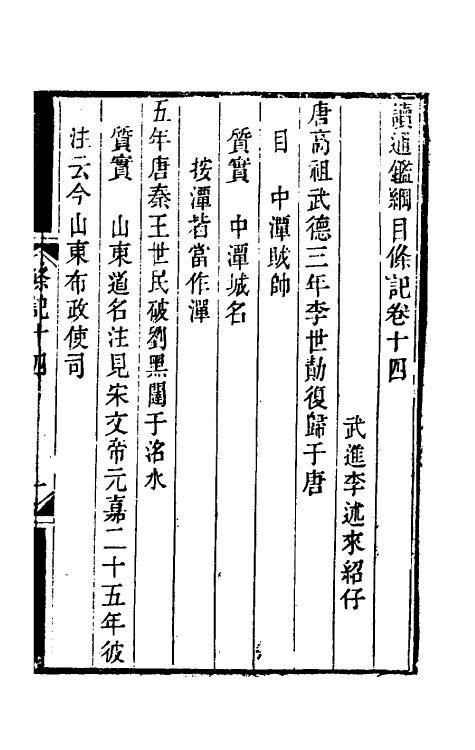 讀通鑑綱目條記卷十四
武進李述來紹仔
唐高祖武德三年李世勣復歸于唐
目　中潬賊帥
質實　中潭城名
按潭皆當作潬
五年唐秦王世民破劉黑闥于洺水
質實　山東道名注見宋文帝元嘉二十五年彼
注云今山東布政使司
條記十四
一